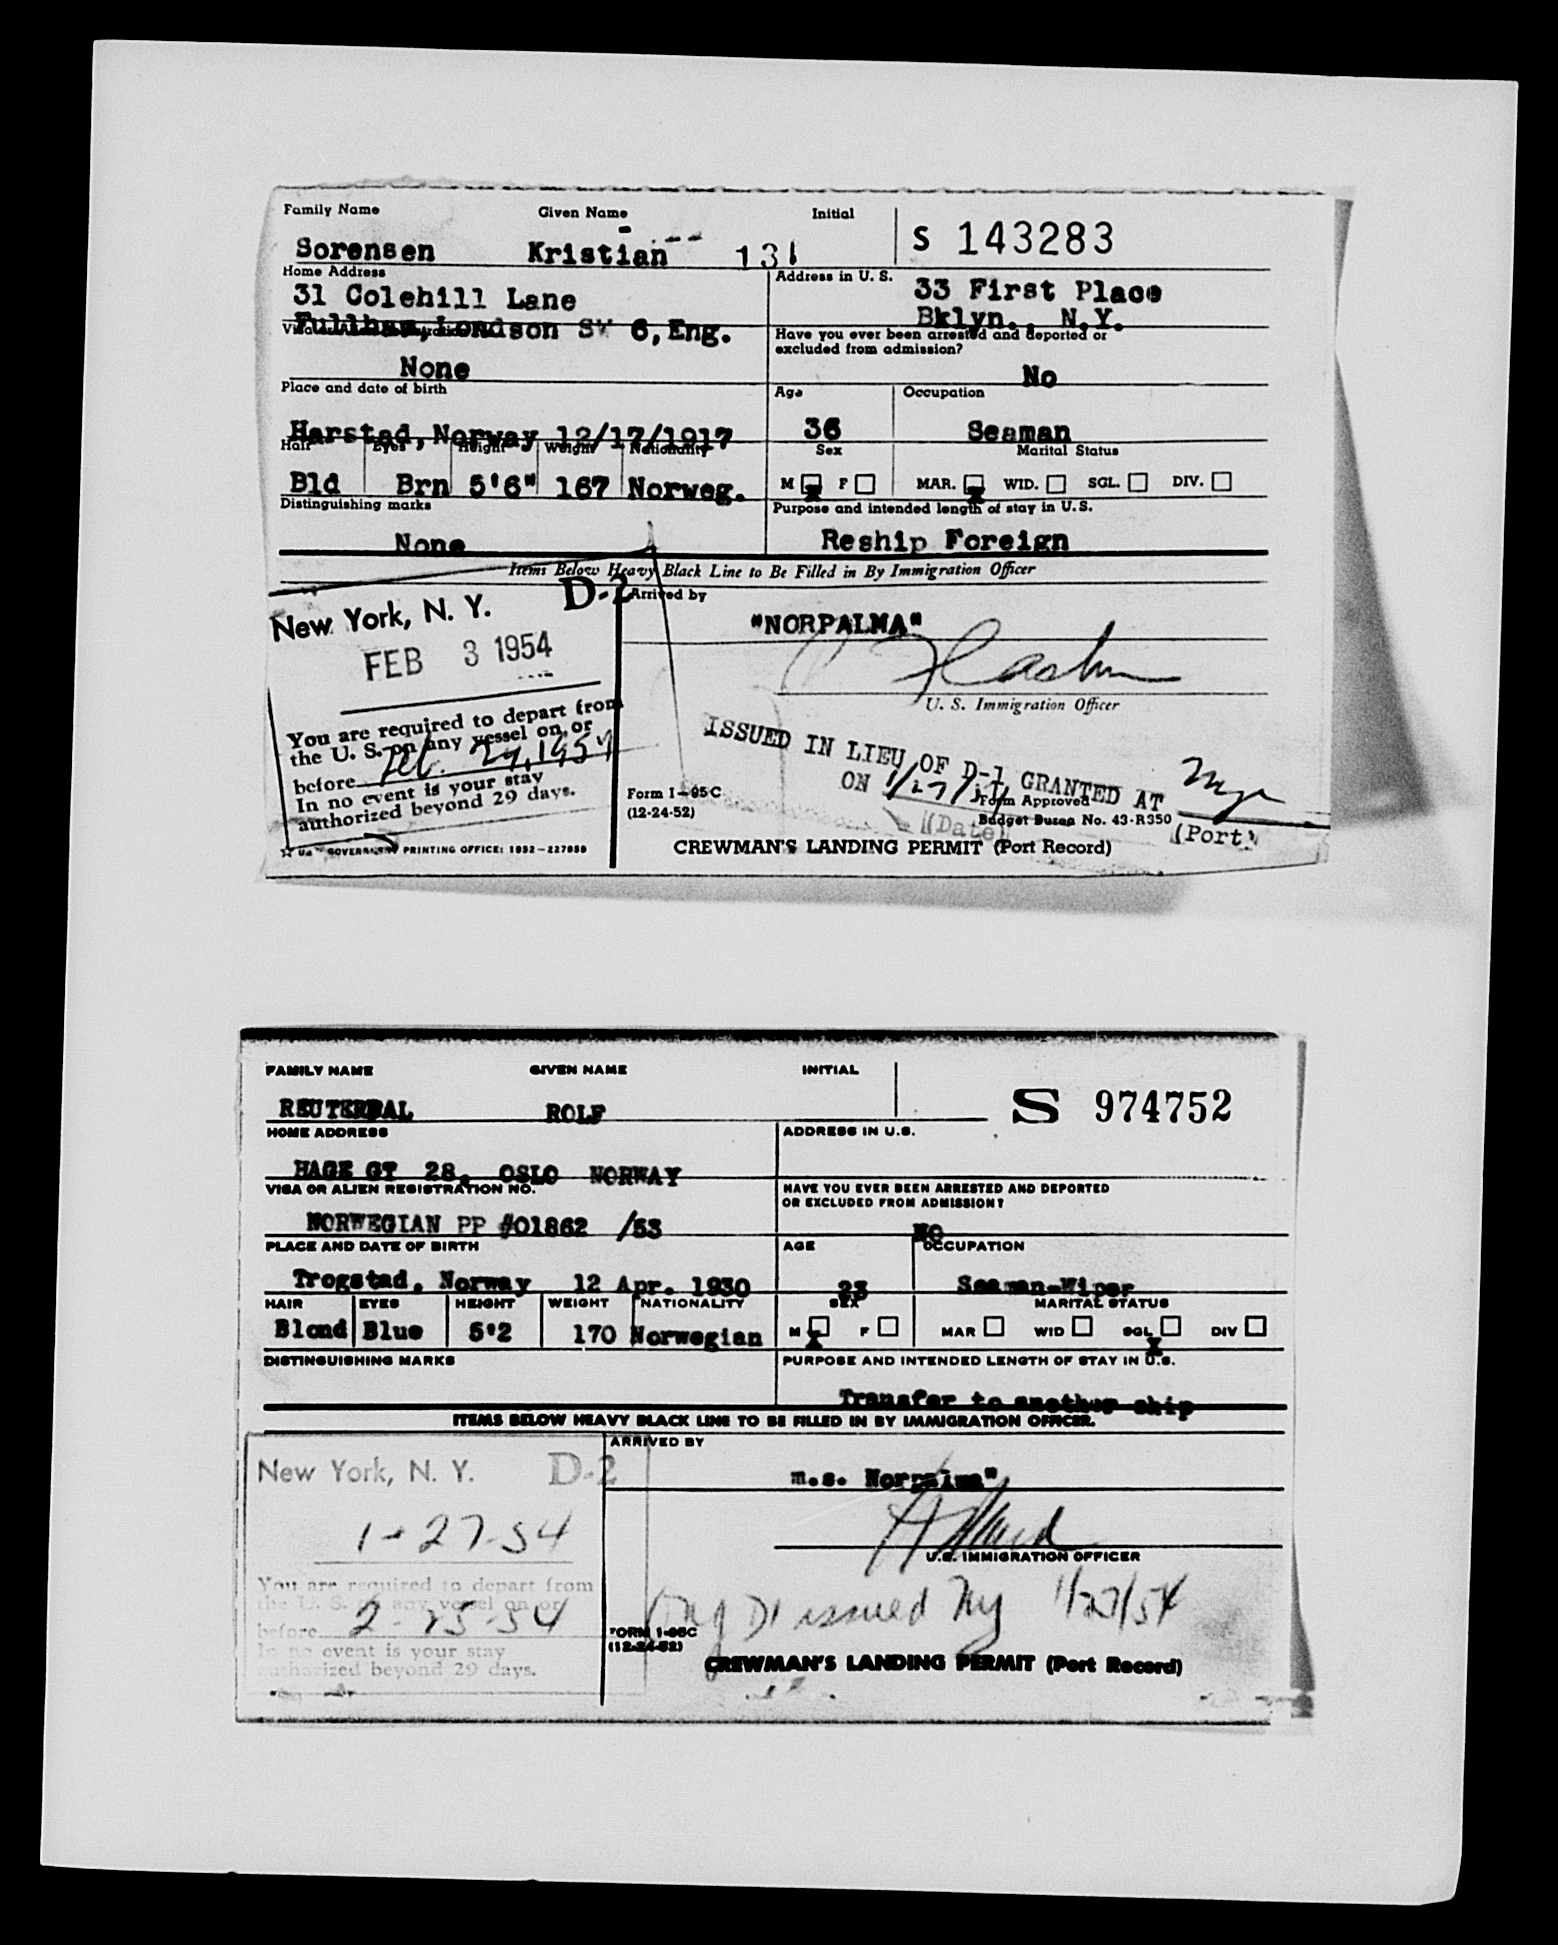 Family Name Given Name Initial
S 143283
Sorensen Kristian 131
Home Address Address in U. S.
31 Colehill Lane 33 First Place
Fullham, Londson SW 6, Eng. Bklyn., N.Y.
Have you ever been arrested and deported or
excluded from admission?
None No
Place and date of birth Age Occupation
Harstad, Norway 12/17/1917 36 Seaman
Hair Eyes Height Weight Nationality Sex Marital Status
Bld Brn 5'6" 167 Norweg. M X F MAR. X WID. SGL. DIV.
Distinguishing marks Purpose and intended length of stay in U.S.
None Reship Foreign
Items Below Heavy Black Line to Be Filled in By Immigration Officer
New York, N. Y. D-2 Arrived by
"NORPALMA"
FEB 3 1954
U. S. Immigration Officer
You are required to depart from
the U. S. on any vessel on or
before Feb. 24, 1954
In no event is your stay
authorized beyond 29 days.
ISSUED IN LIEU OF D-1 GRANTED AT
ON 1/27/54
(Date) (Port)
Form I-95C
(12-24-52)
Form Approved
Budget Bureau No. 43-R350
GOVERNMENT PRINTING OFFICE: 1952-227058
CREWMAN'S LANDING PERMIT (Port Record)
FAMILY NAME GIVEN NAME INITIAL
S 974752
REUTERDAL ROLF
HOME ADDRESS ADDRESS IN U.S.
HAGE GT 28, OSLO NORWAY
VISA OR ALIEN REGISTRATION NO. HAVE YOU EVER BEEN ARRESTED AND DEPORTED
OR EXCLUDED FROM ADMISSION?
NORWEGIAN PP #01862 /53 NO
PLACE AND DATE OF BIRTH AGE OCCUPATION
Trogstad, Norway 12 Apr. 1930 23 Seaman-Wiper
HAIR EYES HEIGHT WEIGHT NATIONALITY SEX MARITAL STATUS
Blond Blue 5'2 170 Norwegian M X F MAR WID SGL X DIV
DISTINGUISHING MARKS PURPOSE AND INTENDED LENGTH OF STAY IN U.S.
Transfer to another ship
ITEMS BELOW HEAVY BLACK LINE TO BE FILLED IN BY IMMIGRATION OFFICER.
ARRIVED BY
New York, N. Y. D-2
m.s. Norpalma"
1-27-54
U.S. IMMIGRATION OFFICER
You are required to depart from
the U. S. on any vessel on or
before 2-25-54
In no event is your stay
authorized beyond 29 days.
Orig D1 issued NY 1/27/54
FORM I-95C
(12-24-52)
CREWMAN'S LANDING PERMIT (Port Record)